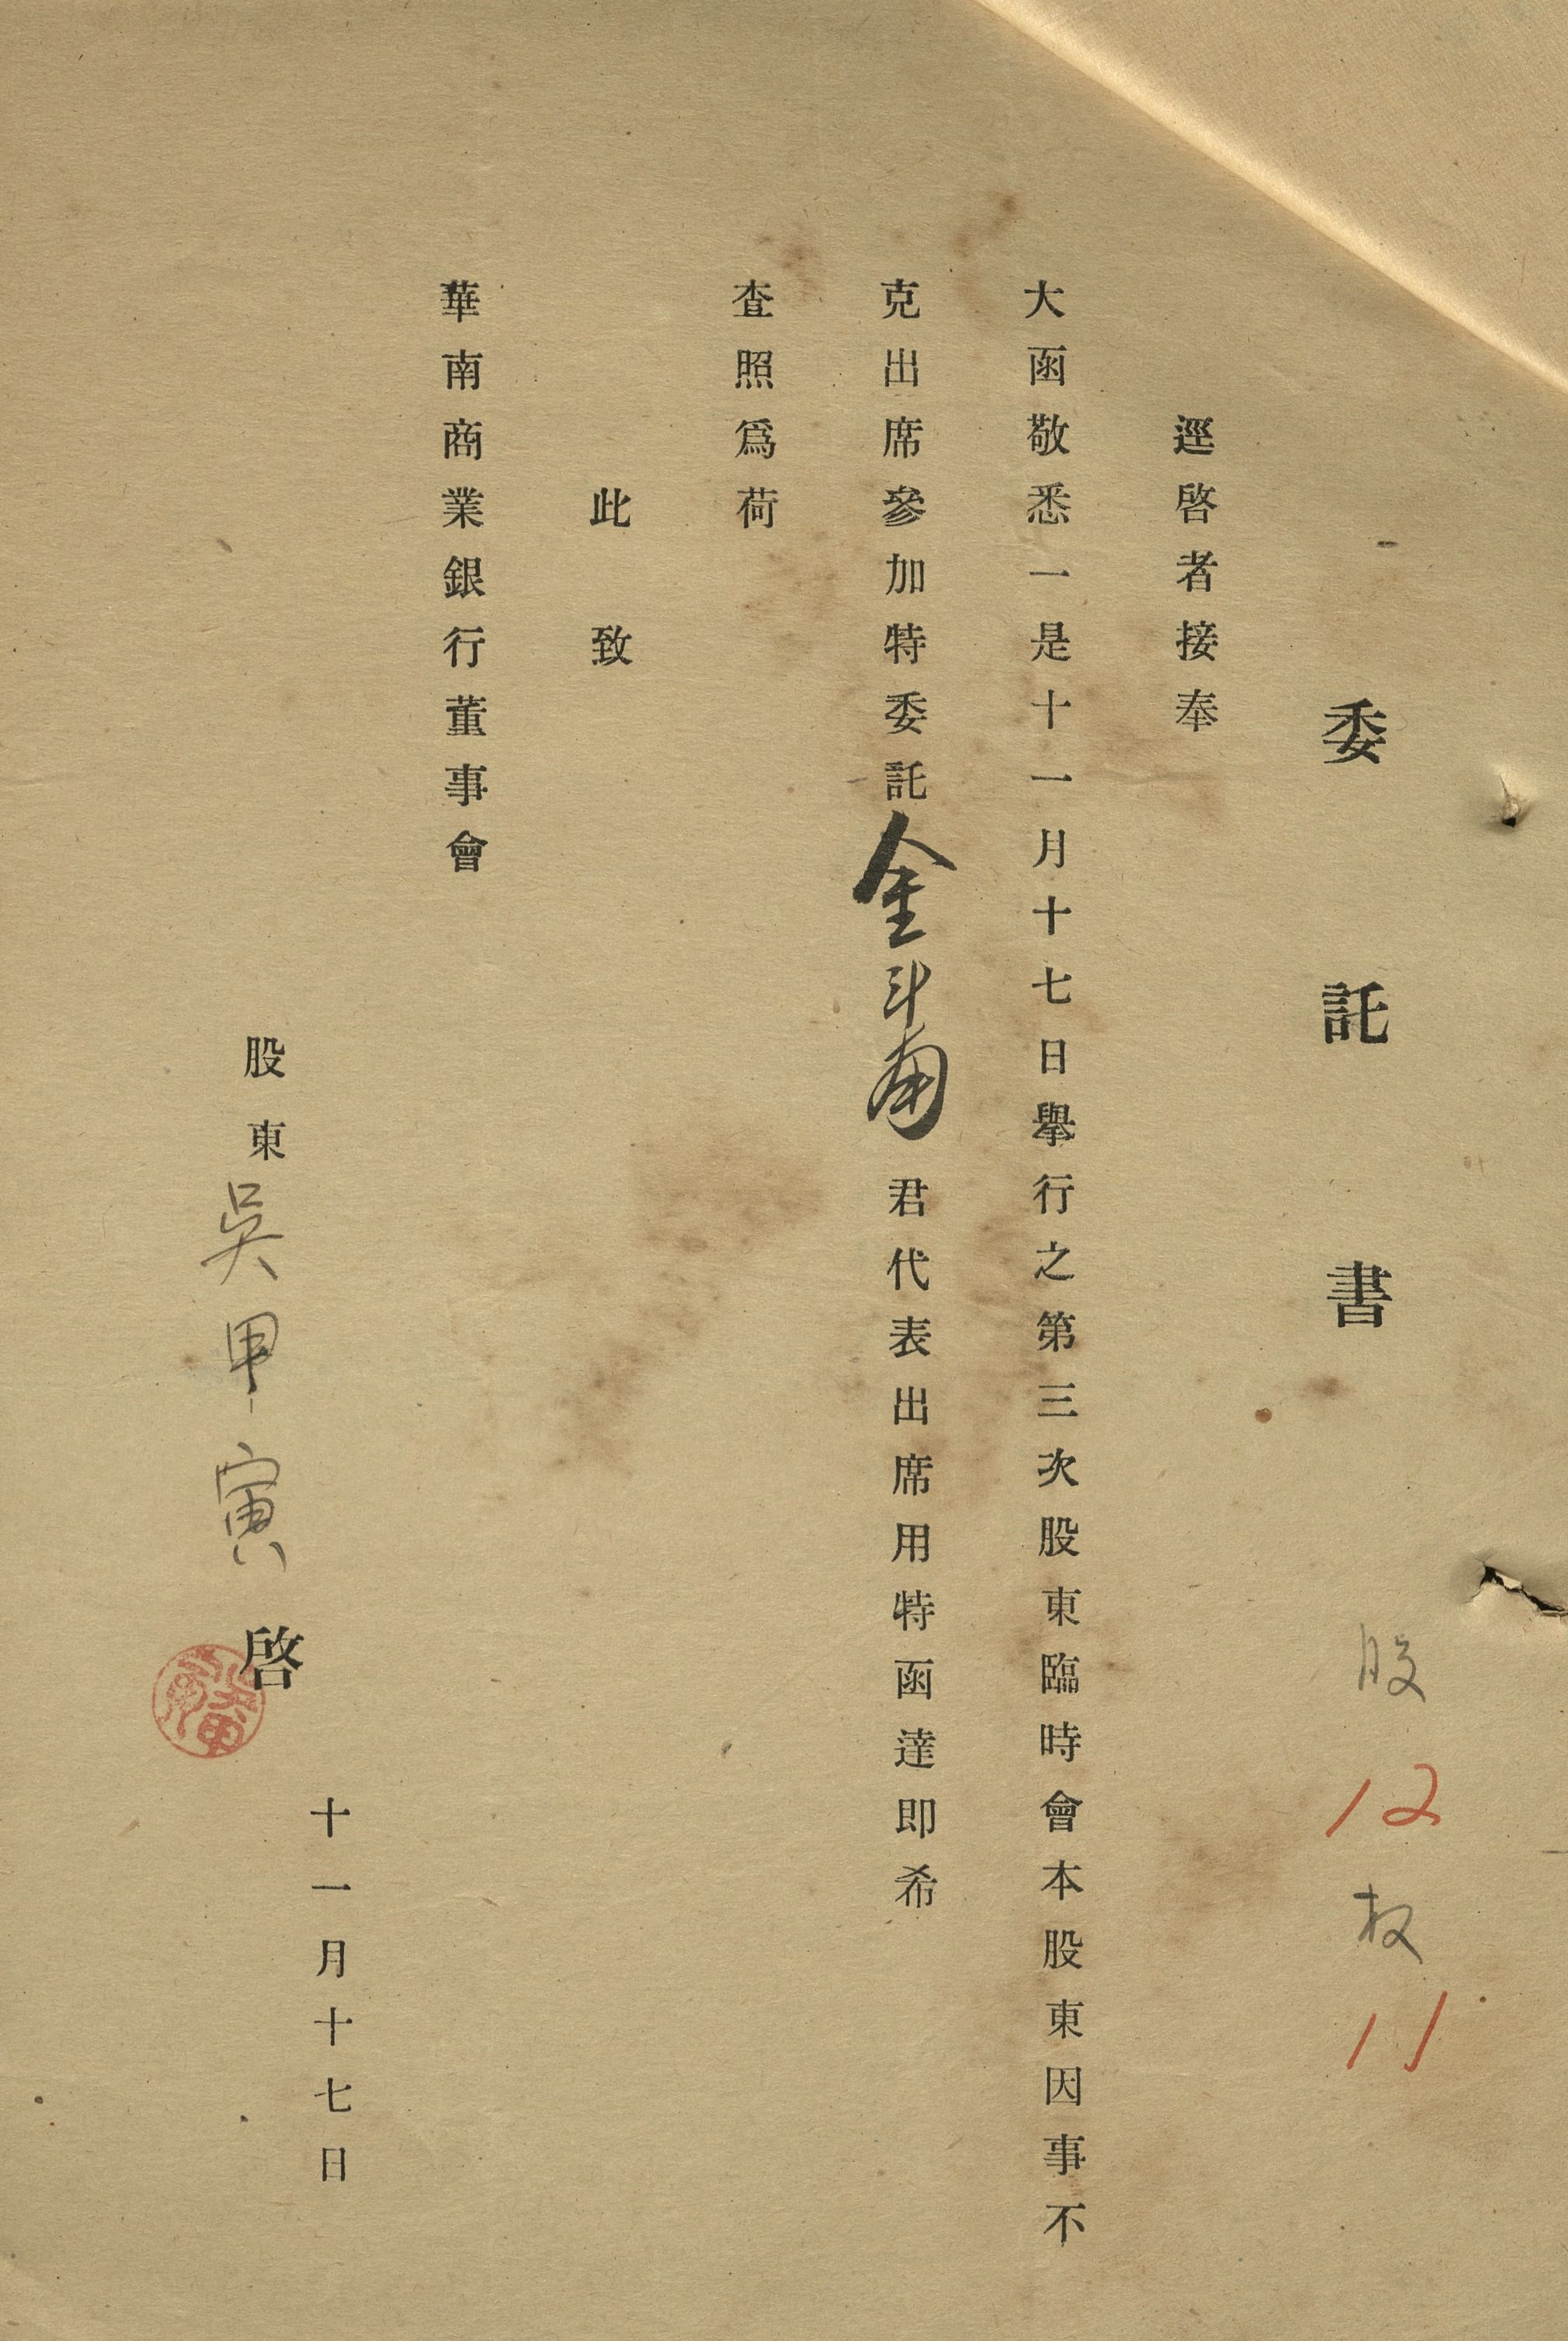 委託書
股 12 权 11
逕啓者接奉
大函敬悉一是十一月十七日舉行之第三次股東臨時會本股東因事不
克出席參加特委託金斗南君代表出席用特函達即希
查照爲荷
此致
華南商業銀行董事會
十一月十七日
股東吳甲寅啓